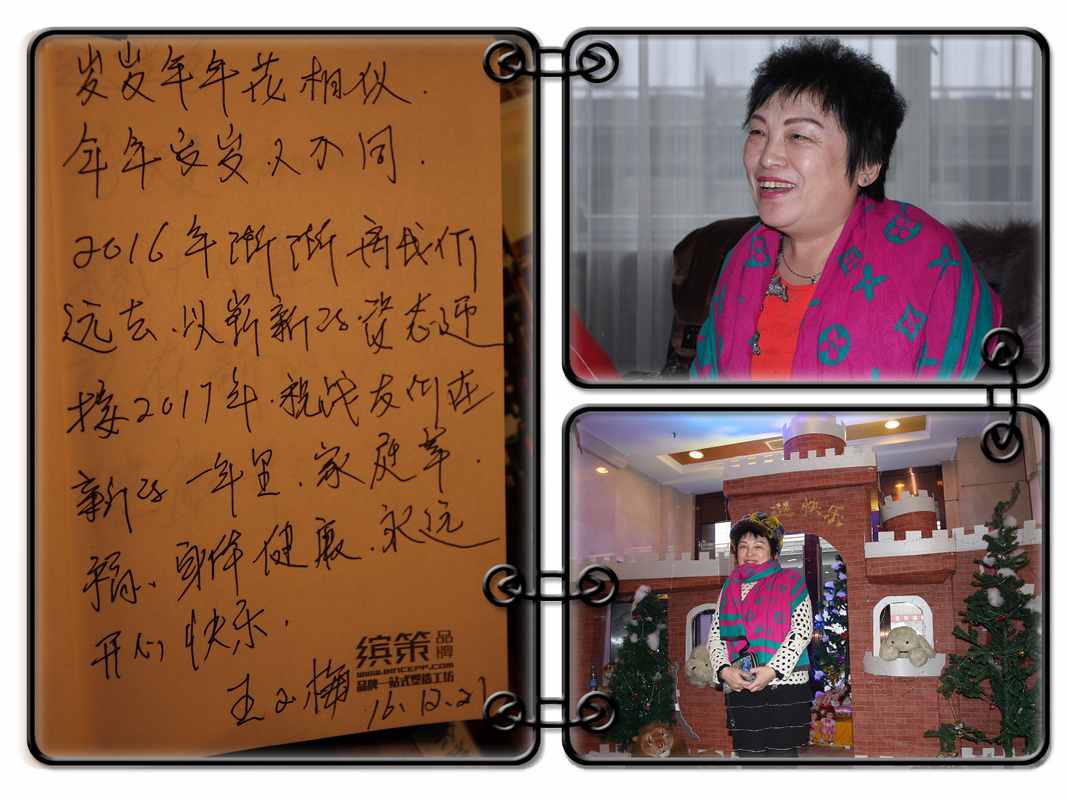 岁岁年年花相似.
年年岁岁.人不同.
2016年渐渐离我们
远去.以崭新的姿态迎
接2017年.祝战友们在
新的一年里.家庭幸.
福、身体健康.永远
开心快乐.
缤策品牌
WWW.BINCEPP.COM
品牌一站式塑造工坊
诞快乐